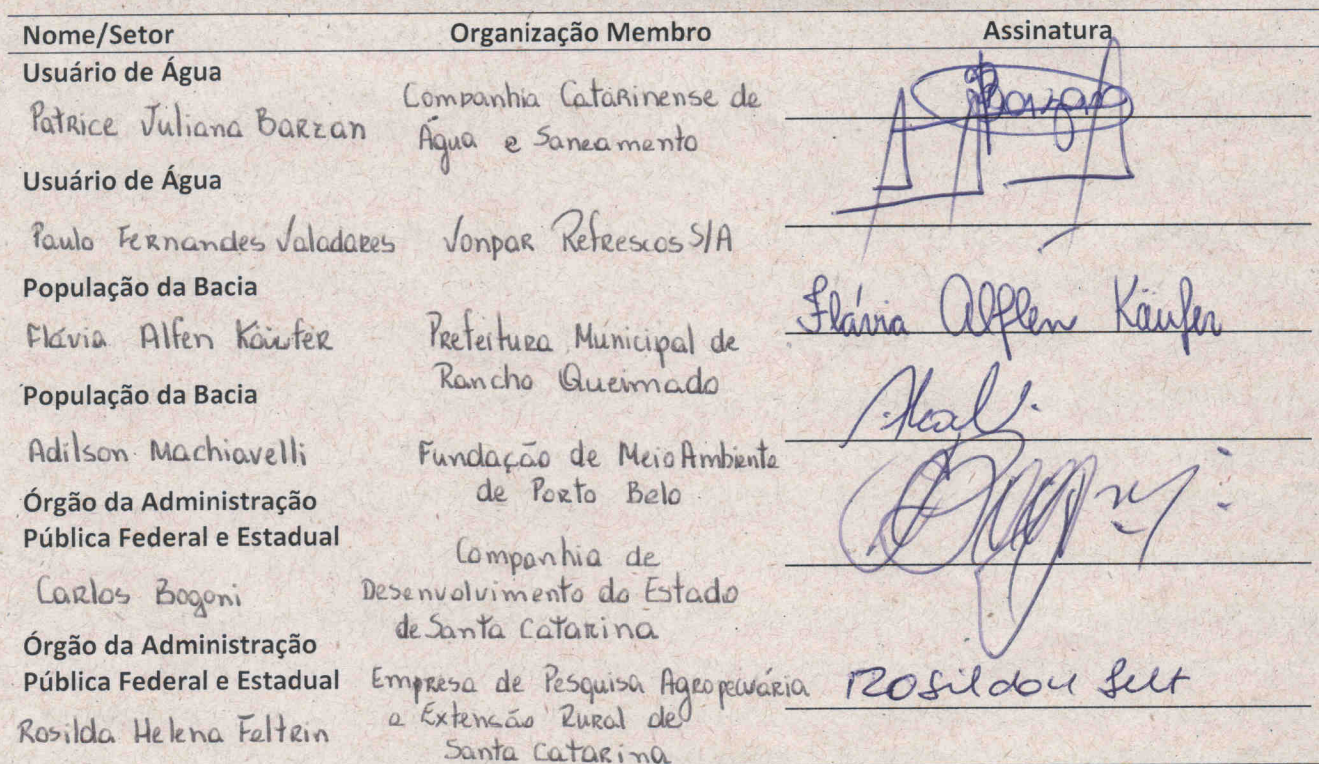 Nome/Setor Organização Membro Assinatura
Usuário de Água
Patrice Juliana Barzan
Companhia Catarinense de
Água e Saneamento
Barzan
Usuário de Água
Paulo Fernandes Valadares
Vonpar Refrescos S/A
População da Bacia
Flávia Alfen Käufer
Prefeitura Municipal de
Rancho Queimado
Flávia Alflen Käufer
População da Bacia
Adilson Machiavelli
Fundação de Meio Ambiente
de Porto Belo
Órgão da Administração
Pública Federal e Estadual
Carlos Bogoni
Companhia de
Desenvolvimento do Estado
de Santa Catarina
Órgão da Administração
Pública Federal e Estadual
Rosilda Helena Feltrin
Empresa de Pesquisa Agropecuária
e Extensão Rural de
Santa Catarina